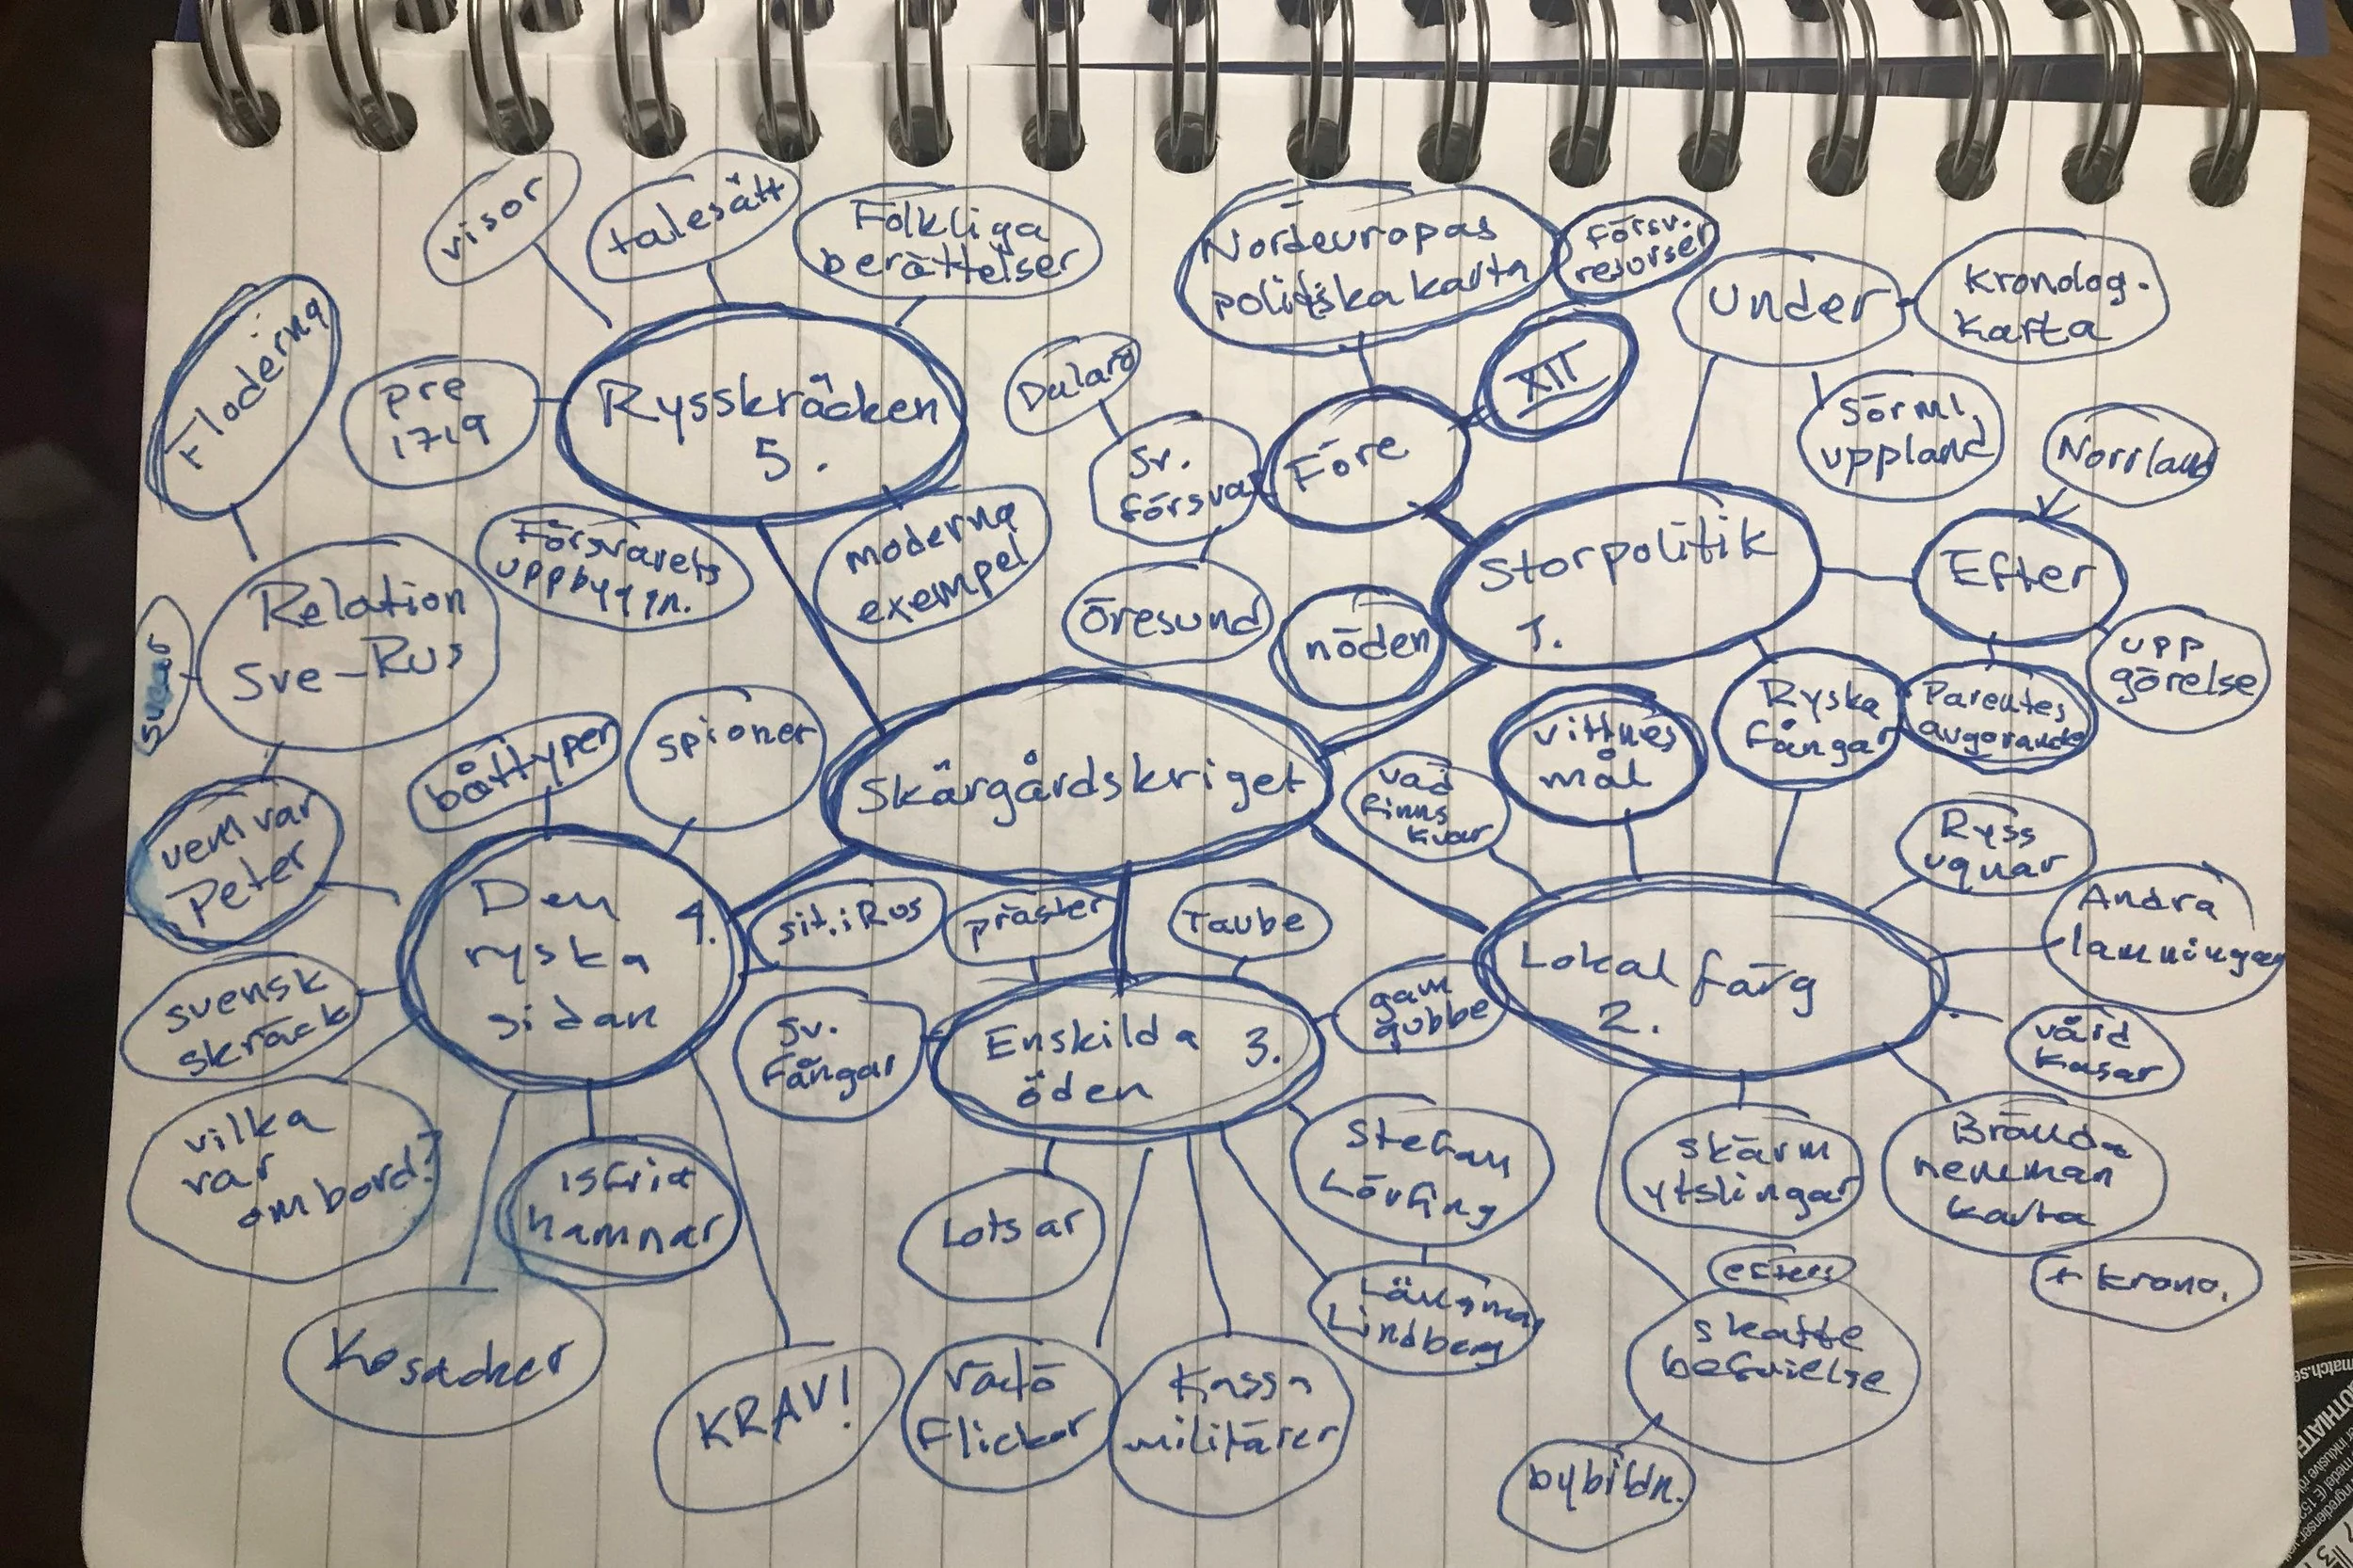 visor
talesätt
Folkliga
berättelser
Floderna
pre
1719
Rysskräcken
5.
Försvarets
uppbyggn.
moderna
exempel
Relation
Sve-Rus
vem var
Peter
båttyper
spioner
Nordeuropas
politiska karta
Försv.
resurser
XII
Före
Dalarö
Sv.
försvar
Öresund
nöden
Under
Kronolog.
karta
Sörml.
uppland
Norrland
Storpolitik
1.
Efter
upp
görelse
Ryska
fångar
Skärgårdskriget
vad
finns
kvar
vittnes
mål
Ryss
ugnar
Andra
lämningar
Lokal färg
2.
vård
kasar
Brända
hemman
karta
+ krono.
skärm
ytslingar
skatte
befrielse
bybildn.
Den 4.
ryska
sidan
sit. i Rus
svensk
skräck
vilka
var
ombord?
isfria
hamnar
Kosacker
KRAV!
präster
Taube
Sv.
fångar
Enskilda 3.
öden
gam
gubbe
Stefan
Löfving
Lindberg
Lotsar
Vätö
Flickor
Kassa
militärer